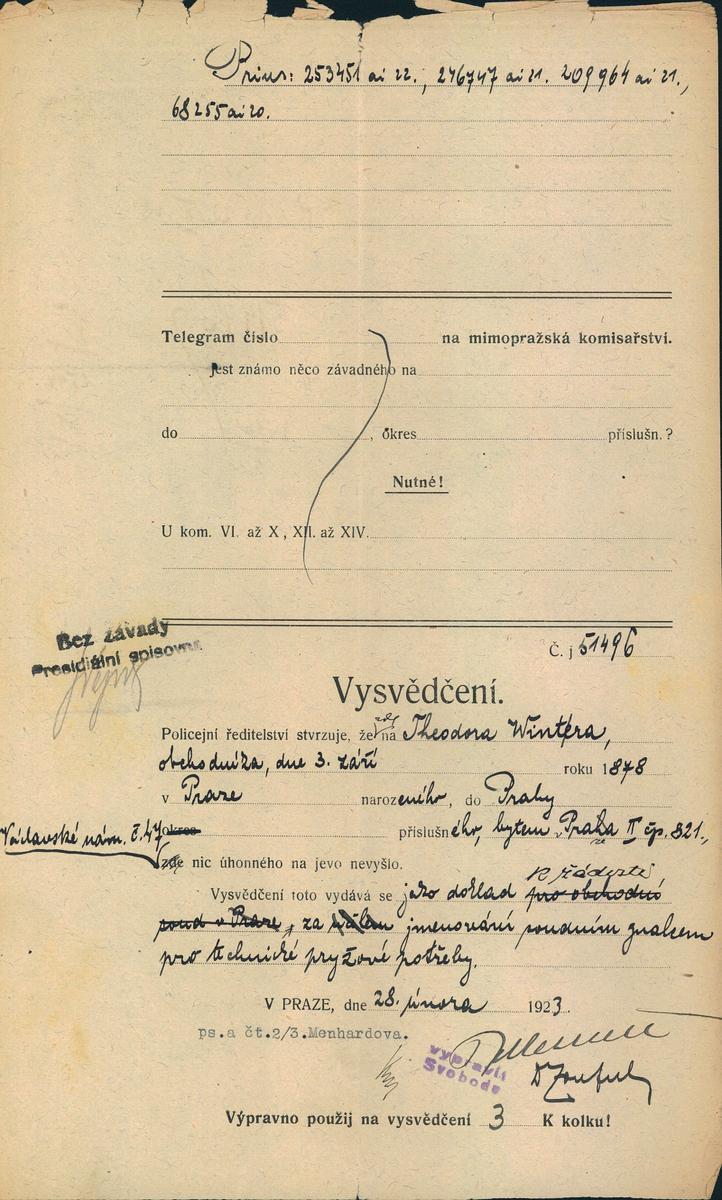 Prius: 253451 ai 22., 246747 ai 21. 209964 ai 21.,
68255 ai 20.
Telegram číslo na mimopražská komisařství.
Jest známo něco závadného na
do , okres příslušn.?
Nutné!
U kom. VI. až X, XII. až XIV.
Bez závady
Presidiální spisovna
Č. j 51496
Vysvědčení.
Policejní ředitelství stvrzuje, že zde na Theodora Wintera,
obchodníka, dne 3. září roku 1878
v Praze narozeného, do Prahy
Václavské nám. č. 47 okres příslušného, bytem v Praze II čp. 821.,
zde nic úhonného na jevo nevyšlo.
k žádosti
Vysvědčení toto vydává se jako doklad pro obchodní
soud v Praze, za jmenování soudním znalcem
pro technické pryžové potřeby.
V PRAZE, dne 28. února 1923.
ps.a čt.2/3.Menhardova.
vypravil
Svoboda
Výpravno použij na vysvědčení 3 K kolku!